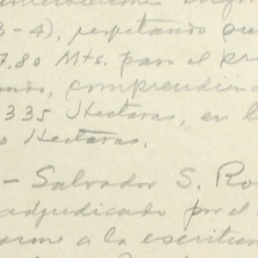 3-4), respetando su
7.80 Mts. para el pr
ando, comprendien
335 Hectaras, en l
o Hectaras.
- Salvador S. Ro
adjudicado por el
orme a la escritur